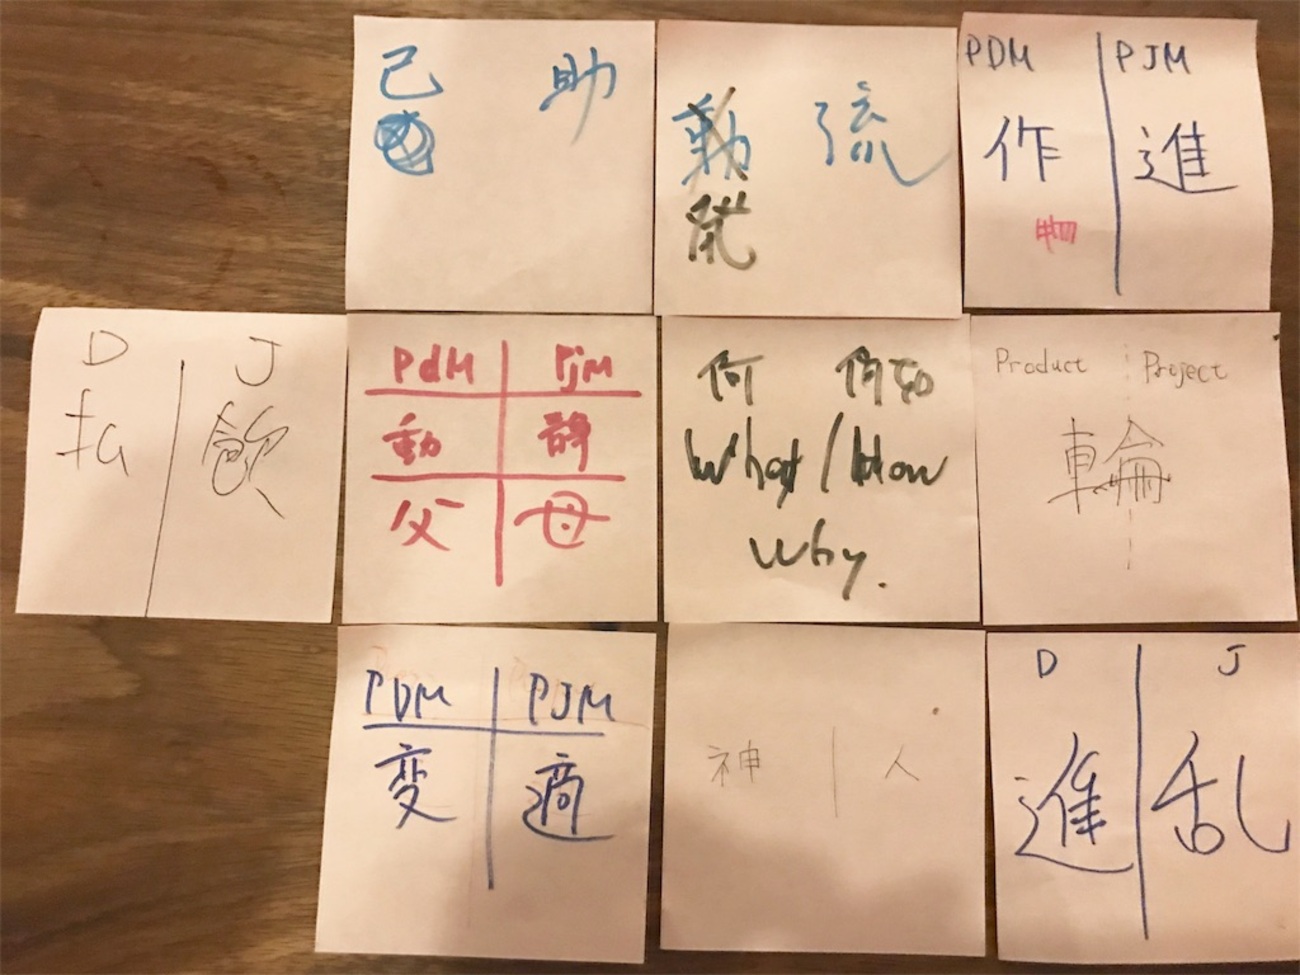 己 助
動 流
PDM PJM
作 進
D J
飲
PdM PjM
動 静
父 母
何
What / How
Why.
Product Project
輪
PDM PJM
変 適
神 人
D J
進 乱